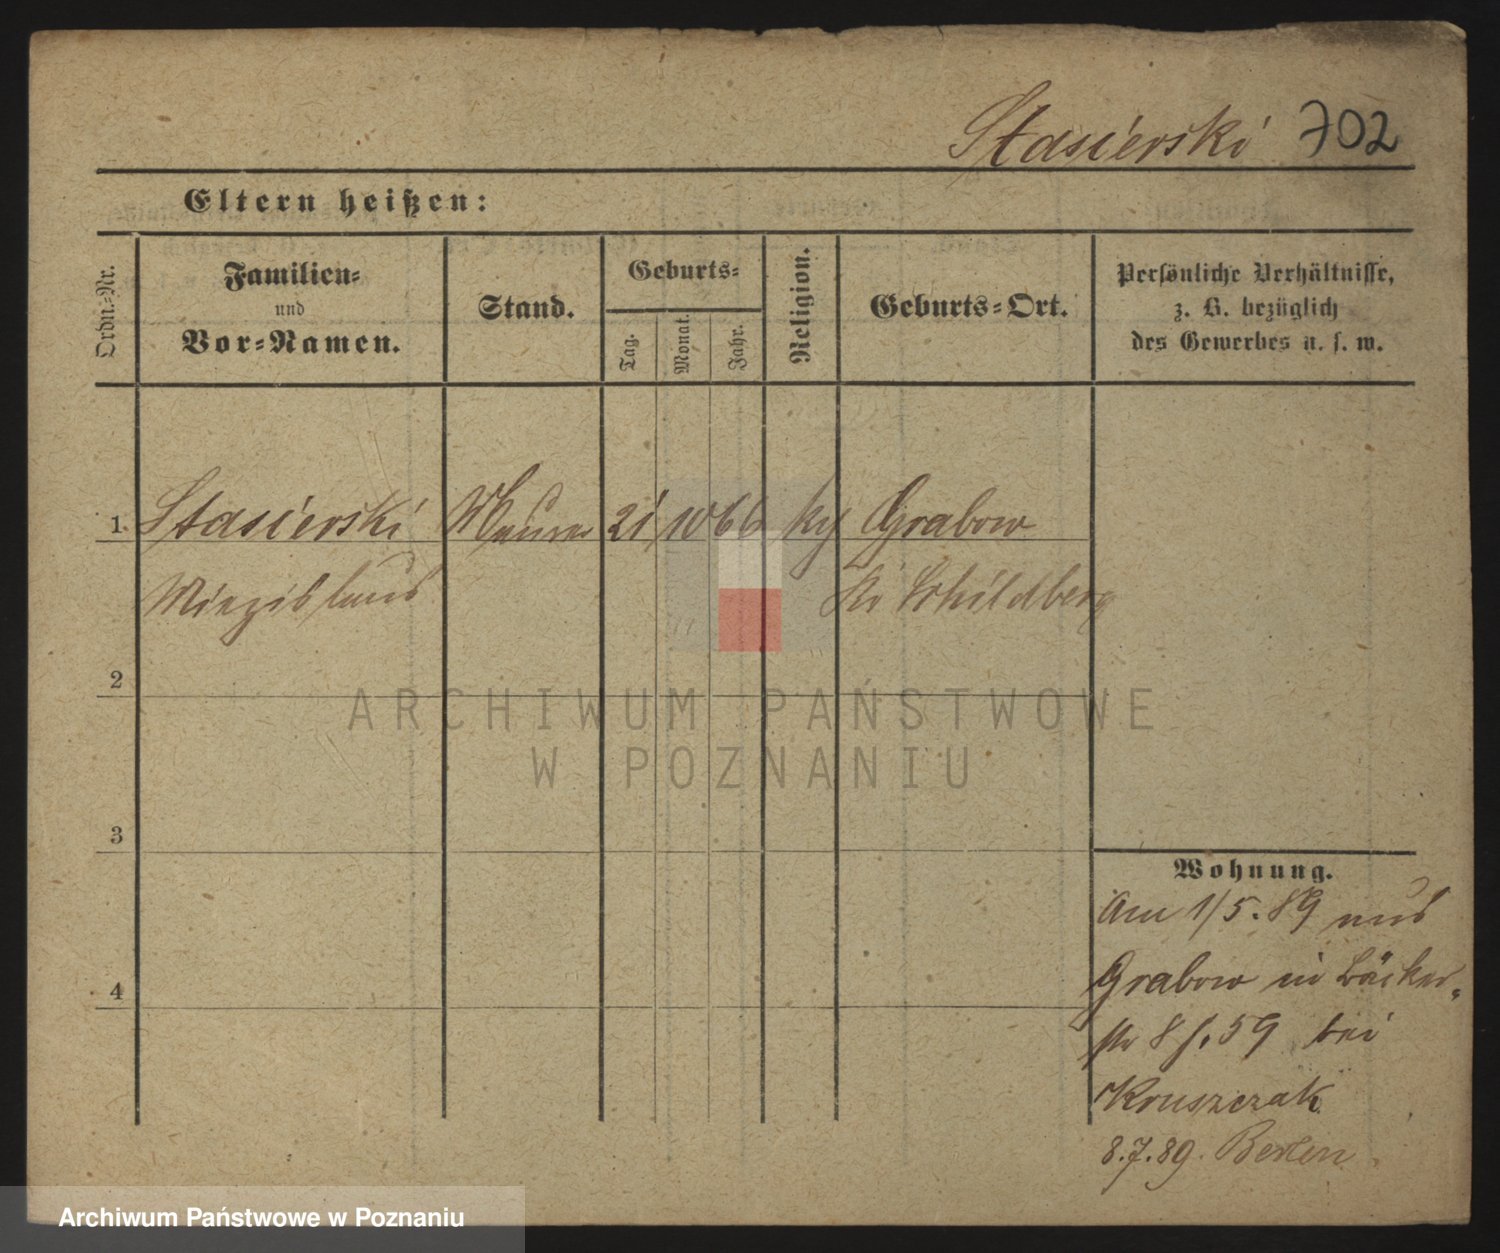 Stasierski 702
Eltern heißen:
Ordn.-Nr.
Familien-
und
Vor-Namen.
Stand.
Geburts-
Tag.
Monat.
Jahr.
Religion.
Geburts-Ort.
Persönliche Verhältnisse,
z. B. bezüglich
des Gewerbes u. s. w.
1 Stasierski Maurer 21 10 66 Grabow
Kr Schildberg
2
3
4
Wohnung.
Am 1/5.89 aus
Grabow in Bäcker-
str 8 f. 59 bei
Kruszczak
8.7.89. Berlin
ARCHIWUM PAŃSTWOWE
W POZNANIU
Archiwum Państwowe w Poznaniu